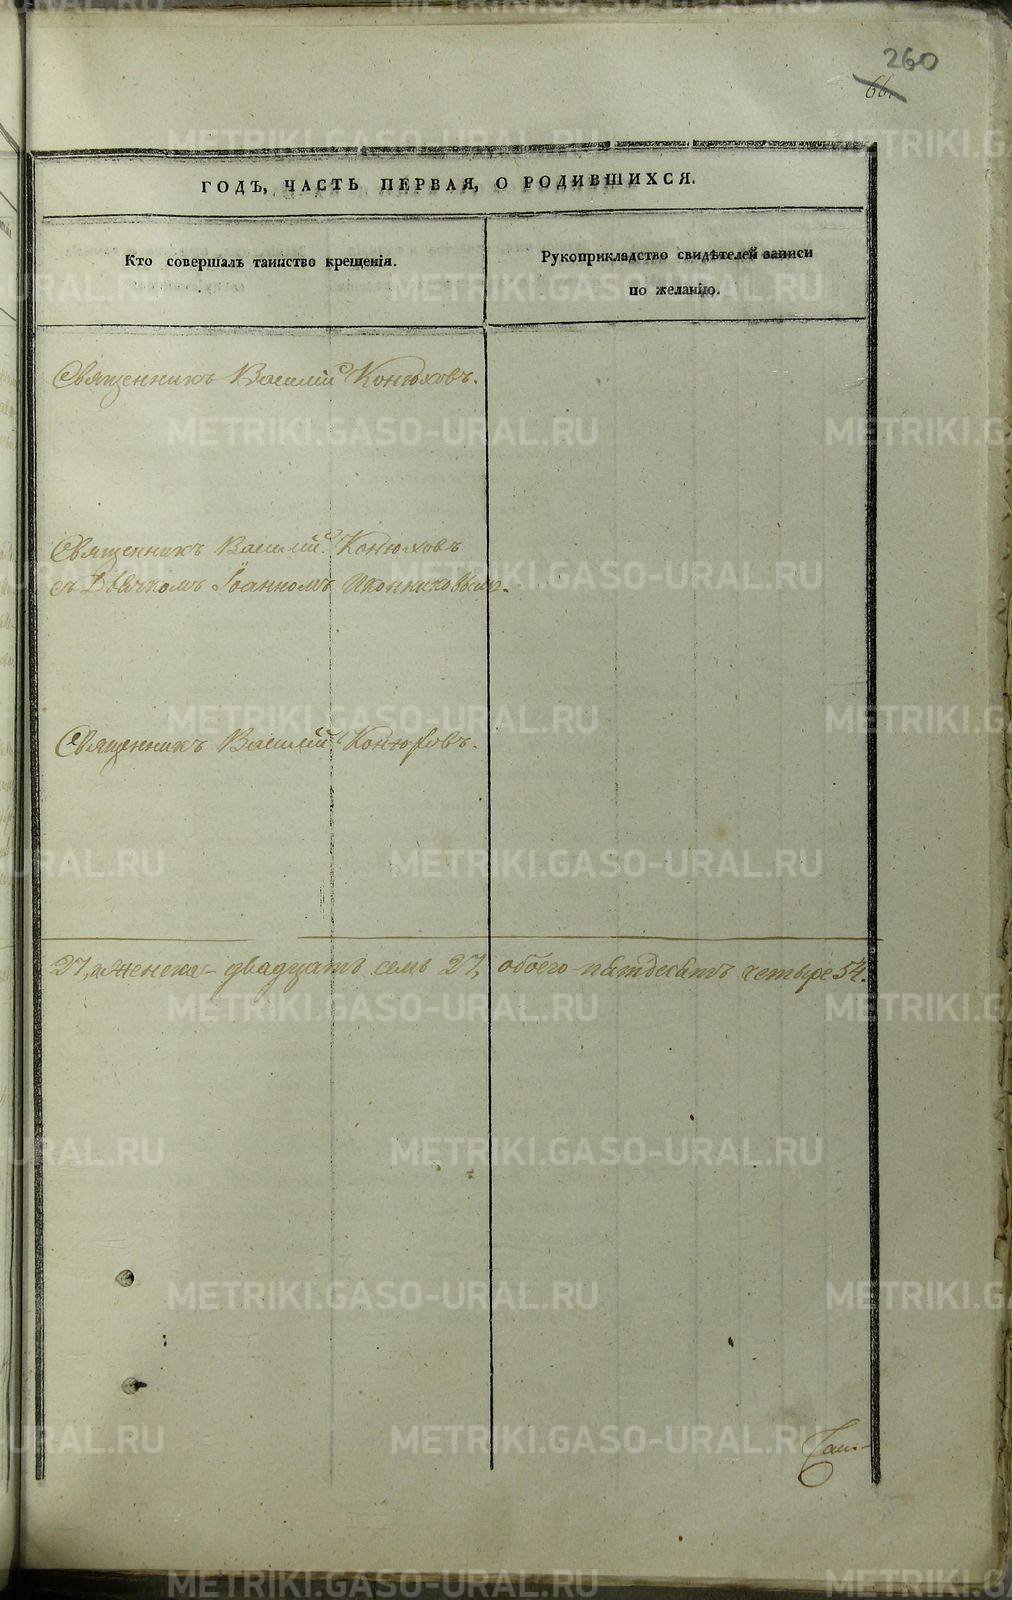 260
66.
ГОДЪ, ЧАСТЬ ПЕРВАЯ, О РОДИВШИХСЯ.
Кто совершалъ таинство крещенія.
Рукоприкладство свидѣтелей записи
по желанію.
Священникъ Василій Конюховъ.
Священникъ Василій Конюховъ
съ Дьячкомъ Іоанномъ Иконниковымъ.
Священникъ Василій Конюховъ.
27, женска – двадцать семь 27, обоего пятдесятъ четыре 54.
METRIKI.GASO-URAL.RU